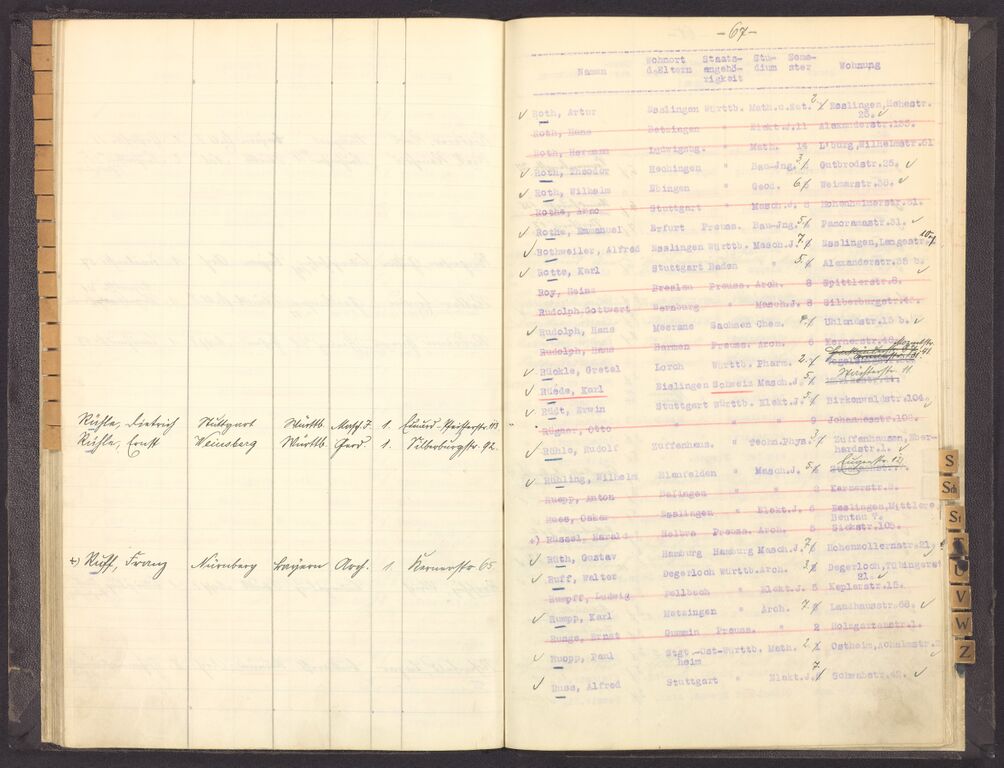 Rühle, Dietrich Stuttgart Württb. Masch.J. 1.
Rühle, Ernst Weinsberg Württb. Geod 1. Silberburgstr. 92.
+) Ruff, Franz Nürnberg Bayern Arch. 1. Kernerstr. 65.
-67-
Namen Wohnort d.Eltern Staats-angehö-rigkeit Stu-dium Seme-ster Wohnung
Roth, Artur Esslingen Württb. Math.u.Nat. 2 Esslingen,Hohestr.
25.
Roth, Hans Betzingen " Elekt.J.11 Alexanderstr.153.
Roth, Hermann Ludwigsbg. " Math. 14 L'burg,Wilhelmstr.51
Roth, Theodor Hechingen " Bau-Jng. 3 Gutbrodstr.25.
Roth, Wilhelm Ebingen " Geod. 6 Weimarstr.38.
Rothe, Arno Stuttgart " Masch.J. 8 Hohenheimerstr.51.
Rothe, Emmanuel Erfurt Preuss. Bau-Jng. 5 Panoramastr.31.
Rothweiler, Alfred Esslingen Württb. Masch.J. 7. Esslingen,Langestr.
Rotte, Karl Stuttgart Baden " 5. Alexanderstr.35 b.
Roy, Heinz Breslau Preuss. Arch. 8 Spittlerstr.8.
Rudolph, Gottwert Bernburg " Masch.J. 8 Silberburgstr.
Rudolph, Hans Meerane Sachsen Chem. Uhlandstr.13 b.
Rudolph, Hans Barmen Preuss. Arch. 6 Kernerstr.
Rückle, Gretel Lorch Württb. Pharm. 2.
Rüede, Karl Eislingen Schweiz Masch.J. 5
Rüdt, Erwin Stuttgart Württb. Elekt.J. 5 Birkenwaldstr.104
Rügner, Otto " " " 9 Johannesstr.
Rühle, Rudolf Zuffenhaus. " Techn.Phys. 3 Zuffenhausen,Eber-
hardstr.1.
Rühling, Wilhelm Blaufelden " Masch.J. 5
Ruepp, Anton " " 2 Kernerstr.
Rues, Oskar Esslingen " Elekt.J. 6 Esslingen,Mittlere
Beutau 7.
+) Rüssel, Harald Preuss. Arch. 8 Sickstr.103.
Rüth, Gustav Hamburg Hamburg Masch.J. 7 Hohenzollernstr.21
Ruff, Walter Degerloch Württb. Arch. 3. Degerloch,Tübingerst
21.
Rumpff, Ludwig Fellbach " Elekt.J. 8 Keplerstr.
Rumpp, Karl Metzingen " Arch. 7. Landhausstr.68.
Runge, Ernst Preuss. " 2 Holzgartenstr.1.
Ruopp, Paul Stgt.-Ost- Württb. Math. 2. Ostheim,
heim
Russ, Alfred Stuttgart " Elekt.J. 7. Schwabstr.
S
Sch
St
U
V
W
Z